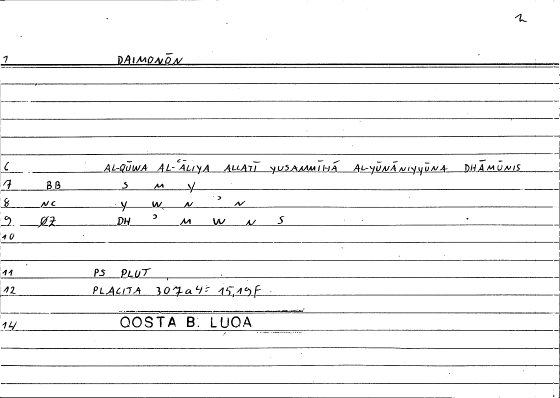 2
1 DAIMONŌN
6 AL-QŪWA AL-ʿĀLIYA ALLATĪ YUSAMMĪHĀ AL-YŪNĀNIYYŪNA DHĀMŪNIS
7 BB S M Y
8 NC Y W N ʾ N
9 ØZ DH ʾ M W N S
10
11 PS PLUT
12 PLACITA 307a4 = 15,19F
14 QOSTA B. LUQA